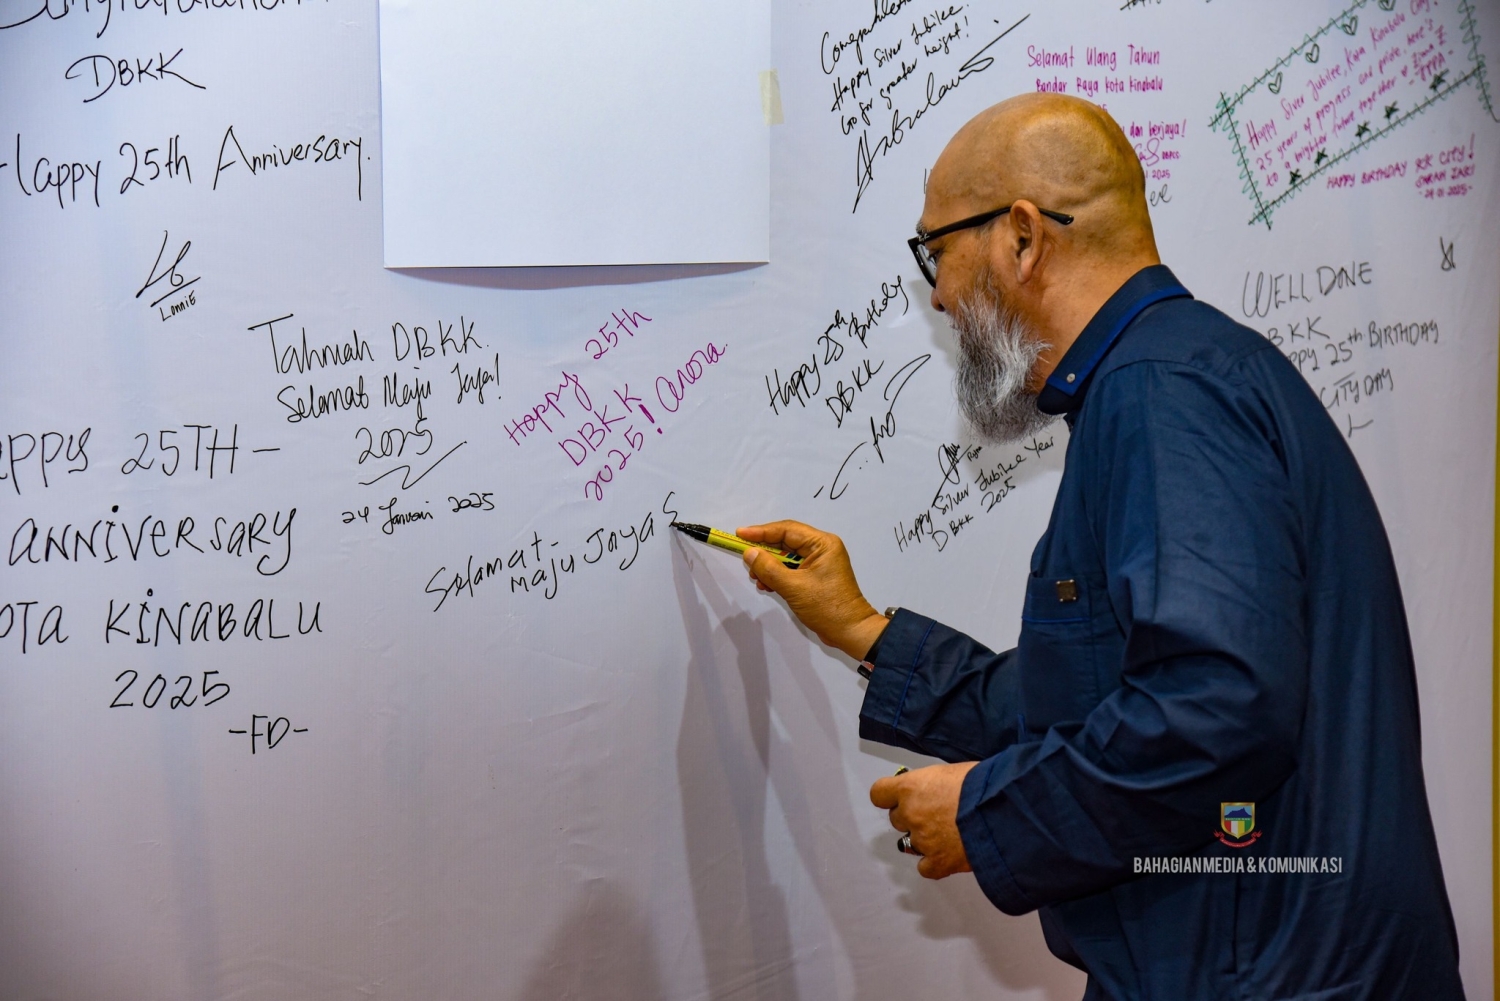 DBKK
Happy 25th Anniversary.
LonniE
Tahniah DBKK.
Selamat Maju Jaya!
2025
24 Januari 2025
APPY 25TH -
ANNIVERSARY
OTA KINABALU
2025
-FD-
Happy 25th
DBKK
2025! Carora.
Selamat
maju Jaya S
Happy Silver Jubilee.
Go for greater height!
Selamat Ulang Tahun
Bandar Raya Kota Kinabalu
dan berjaya!
Happy Silver Jubilee, Kota Kinabalu City!
25 years of progress and pride, here's
to a brighter future together
HAPPY BIRTHDAY KK CITY!
SARAH ZAKY
- 24 01 2025 -
Happy 25th Birthday
DBKK
Happy Silver Jubilee Year
DBKK 2025
WELL DONE
DBKK
PPY 25th BIRTHDAY
CITY DAY
BAHAGIAN MEDIA & KOMUNIKASI